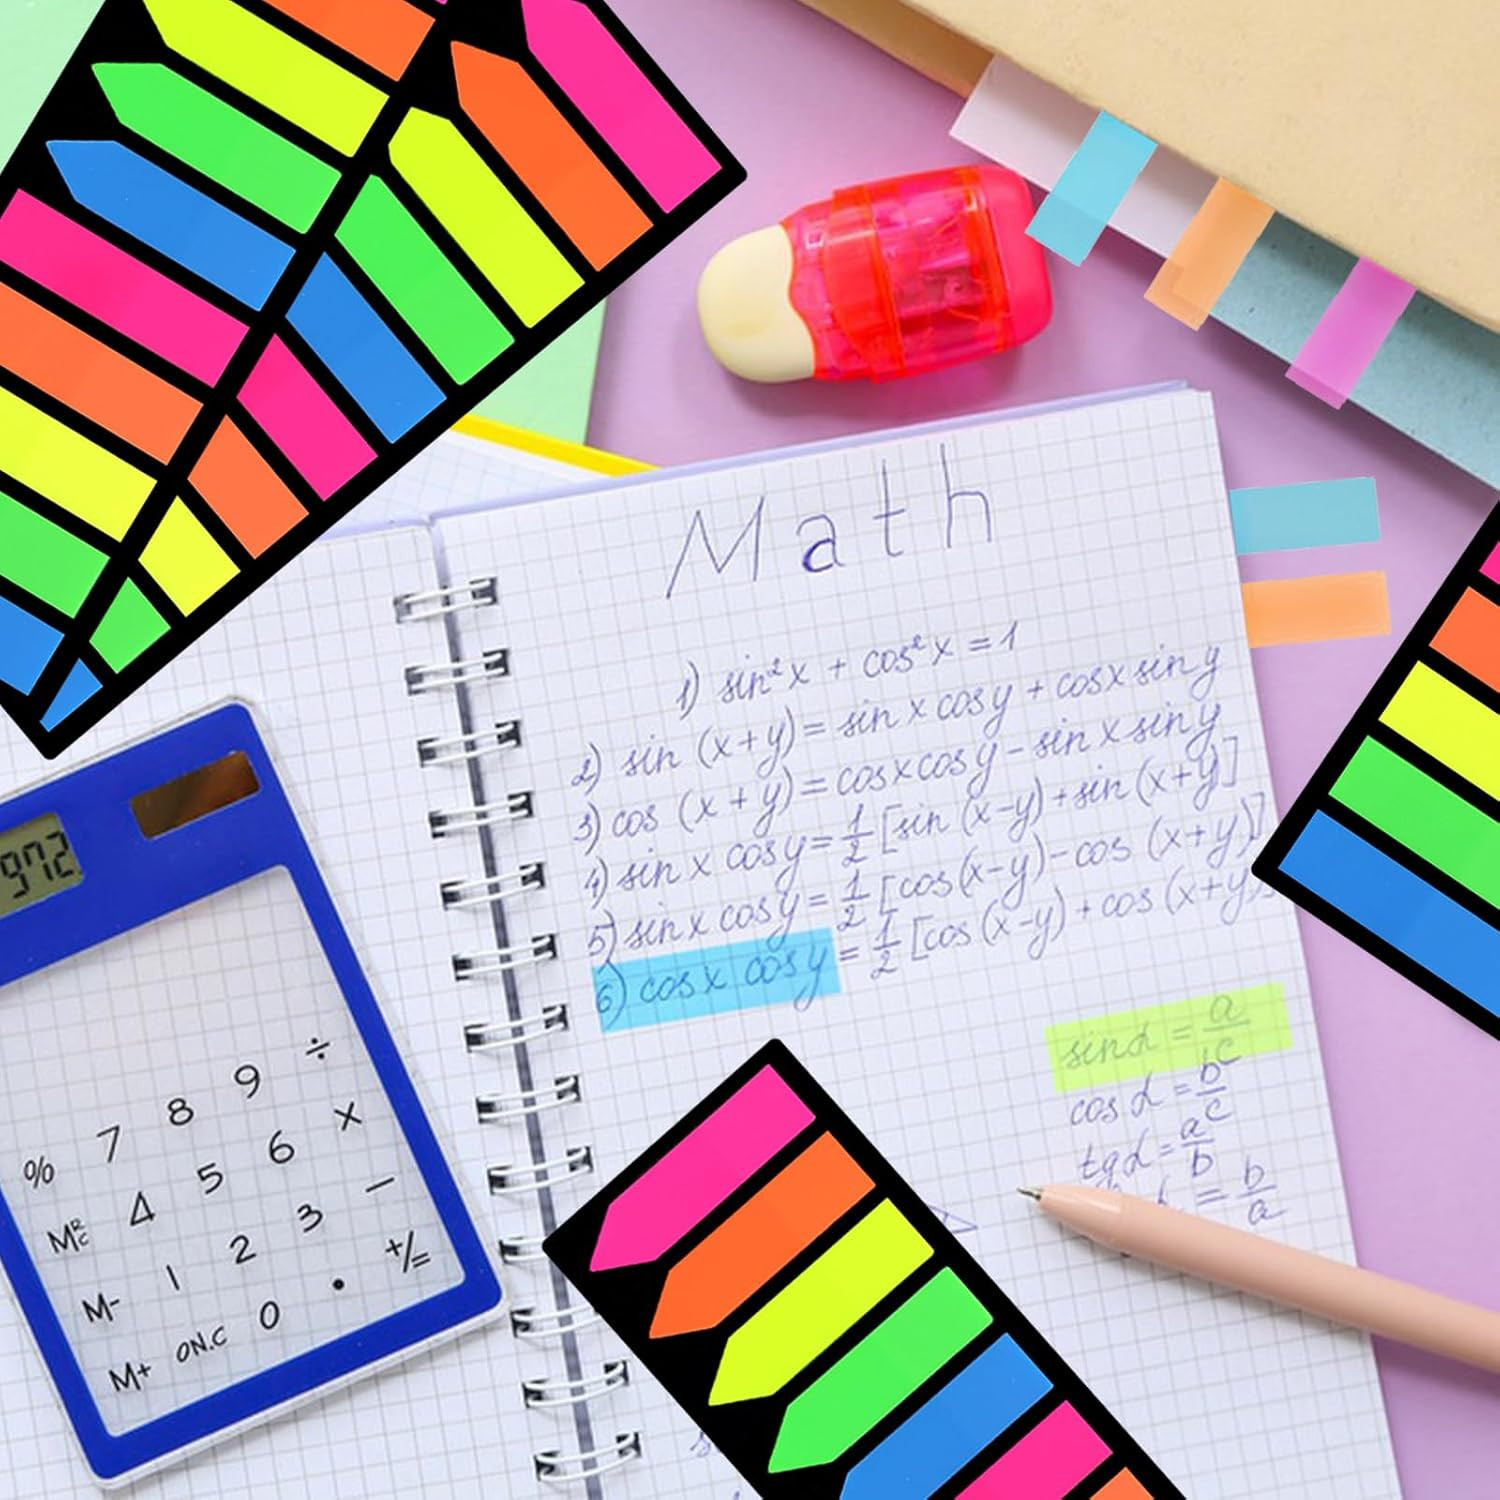 Math
1) sin²x + cos²x = 1
2) sin (x+y) = sin x cos y + cosx sin y
3) cos (x+y) = cosxcosy - sin x siny
4) sin x cosy = 1/2 [sin (x-y) + sin (x+y)]
5) sinx cosy = 1/2 [cos (x-y) - cos (x+y)]
6) cosx cosy = 1/2 [cos (x-y) + cos (x+y)
sinα = a/c
cos α = b/c
tgα = a/b
= b/a
972
÷
7 8 9 ×
% 4 5 6 −
MRC 1 2 3 +/=
M- 0 •
M+ ON.C